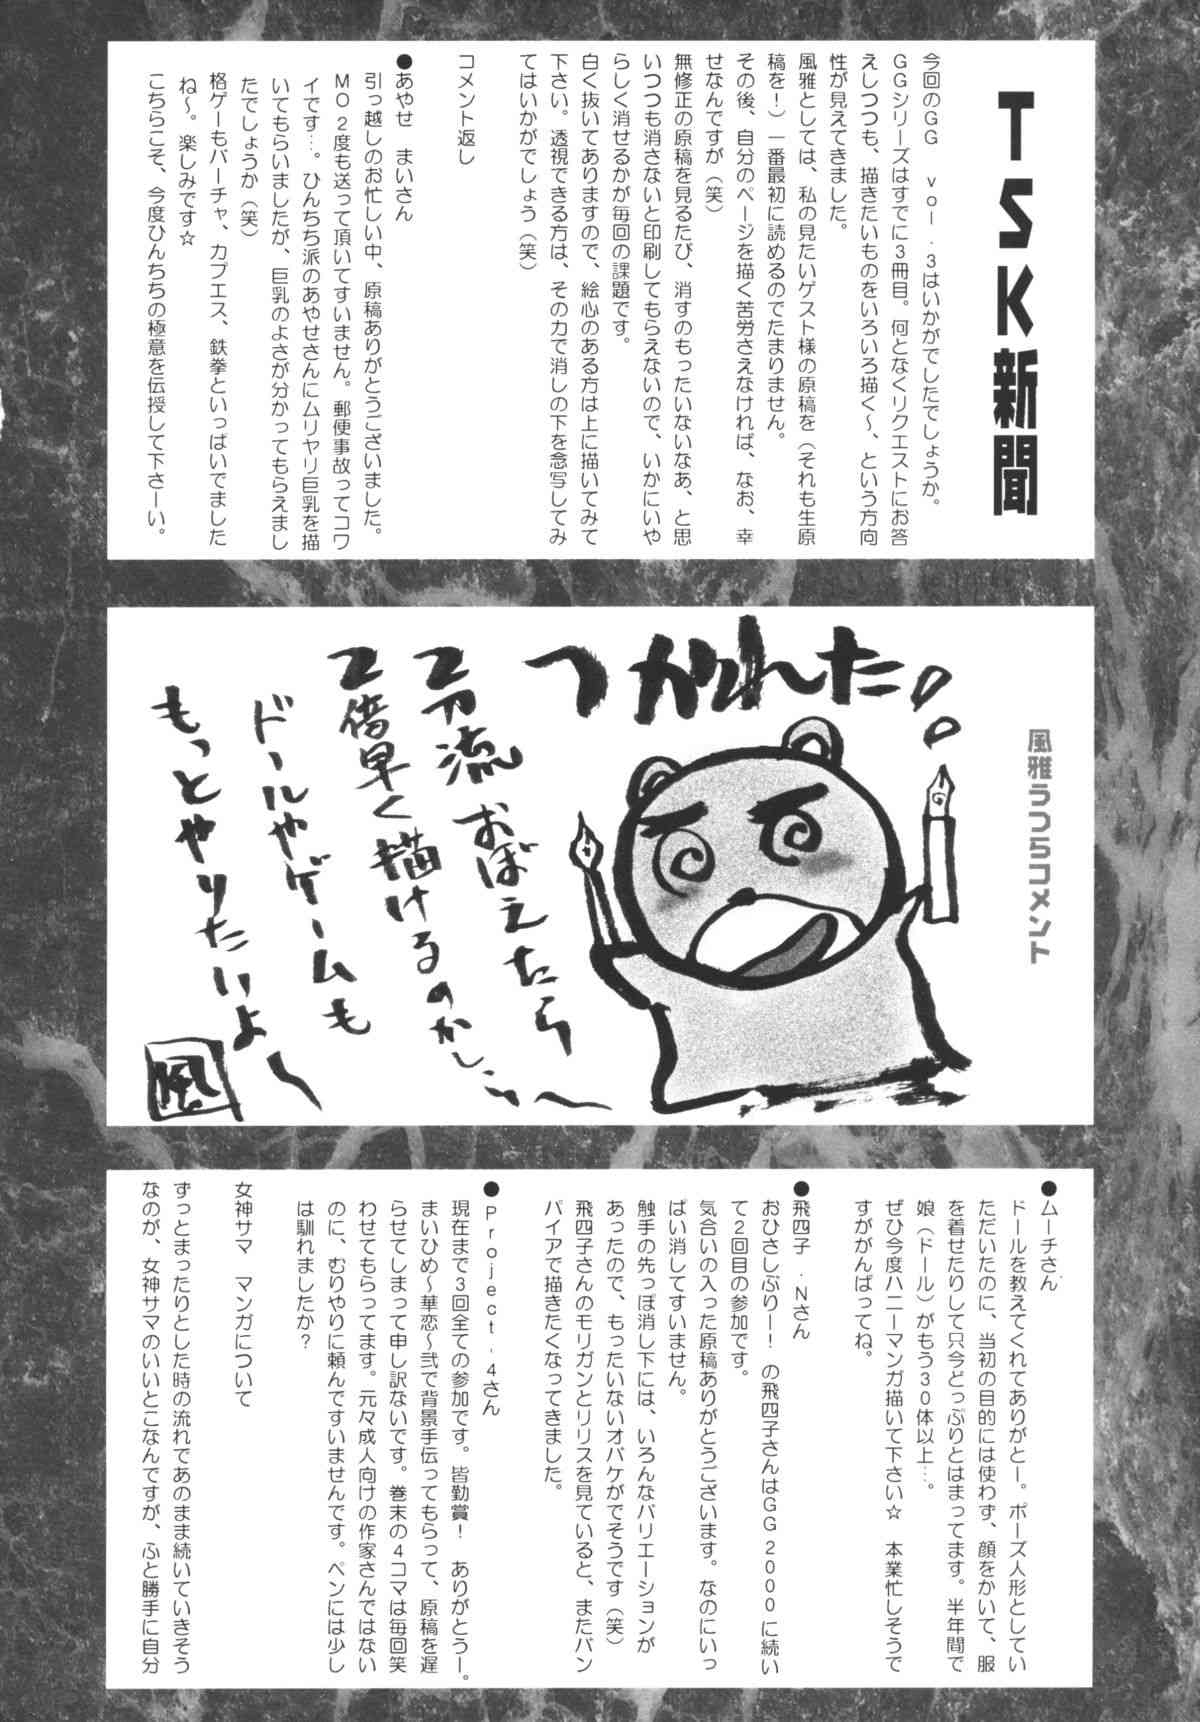 TSK新聞
今回のGG vol.3はいかがでしたでしょうか。
GGシリーズはすでに3冊目。何となくリクエストにお答
えしつつも、描きたいものをいろいろ描く～、という方向
性が見えてきました。
風雅としては、私の見たいゲスト様の原稿を（それも生原
稿を！）一番最初に読めるのでたまりません。
その後、自分のページを描く苦労さえなければ、なお、幸
せなんですが（笑）
無修正の原稿を見るたび、消すのもったいないなあ、と思
いつつも消さないと印刷してもらえないので、いかにいや
らしく消せるかが毎回の課題です。
白く抜いてありますので、絵心のある方は上に描いてみて
下さい。透視できる方は、その力で消しの下を念写してみ
てはいかがでしょう（笑）
コメント返し
●あやせ まいさん
引っ越しのお忙しい中、原稿ありがとうございました。
MO2度も送って頂いてすいません。郵便事故ってコワ
イです…。ひんちち派のあやせさんにムリヤリ巨乳を描
いてもらいましたが、巨乳のよさが分かってもらえまし
たでしょうか（笑）
格ゲーもバーチャ、カプエス、鉄拳といっぱいでました
ね～。楽しみです☆
こちらこそ、今度ひんちちの極意を伝授して下さーい。
風雅うつらコメント
つかれた
2刀流おぼえたら
2倍早く描けるのかしら～
ドールやゲームも
もっとやりたいよ～
風
●ムーチさん
ドールを教えてくれてありがとー。ポーズ人形としてい
ただいたのに、当初の目的には使わず、顔をかいて、服
を着せたりして只今どっぷりとはまってます。半年間で
娘（ドール）がもう30体以上…。
ぜひ今度ハニーマンガ描いて下さい☆ 本業忙しそうで
すががんばってね。
●飛四子．Nさん
おひさしぶりー！の飛四子さんはGG2000に続い
て2回目の参加です。
気合いの入った原稿ありがとうございます。なのにいっ
ぱい消してすいません。
触手の先っぽ消し下には、いろんなバリエーションが
あったので、もったいないオバケがでそうです（笑）
飛四子さんのモリガンとリリスを見ていると、またバン
パイアで描きたくなってきました。
●Project．4さん
現在まで3回全ての参加です。皆勤賞！ ありがとうー。
まいひめ～華恋～弐で背景手伝ってもらって、原稿を遅
らせてしまって申し訳ないです。巻末の4コマは毎回笑
わせてもらってます。元々成人向けの作家さんではない
のに、むりやりに頼んですいませんです。ペンには少し
は馴れましたか？
女神サマ マンガについて
ずっとまったりとした時の流れであのまま続いていきそう
なのが、女神サマのいいとこなんですが、ふと勝手に自分